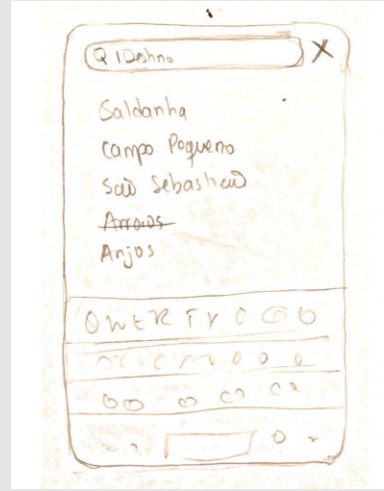 Q | Destino X
Saldanha
Campo Pequeno
São Sebastião
Arroios
Anjos
QWERTY